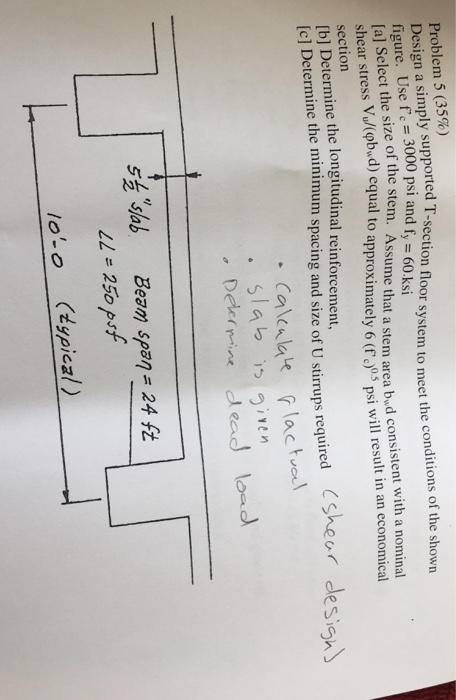 Problem 5 (35%)
Design a simply supported T-section floor system to meet the conditions of the shown
figure. Use f'c = 3000 psi and fy = 60.ksi
[a] Select the size of the stem. Assume that a stem area bwd consistent with a nominal
shear stress Vu/(φbwd) equal to approximately 6 (f'c)^0.5 psi will result in an economical
section
[b] Determine the longitudinal reinforcement,
[c] Determine the minimum spacing and size of U stirrups required (shear design)
• calculate
• slab is given
• Determine dead load
5 1/2" slab
Beam span = 24 ft
LL = 250 psf
10'-0 (typical)